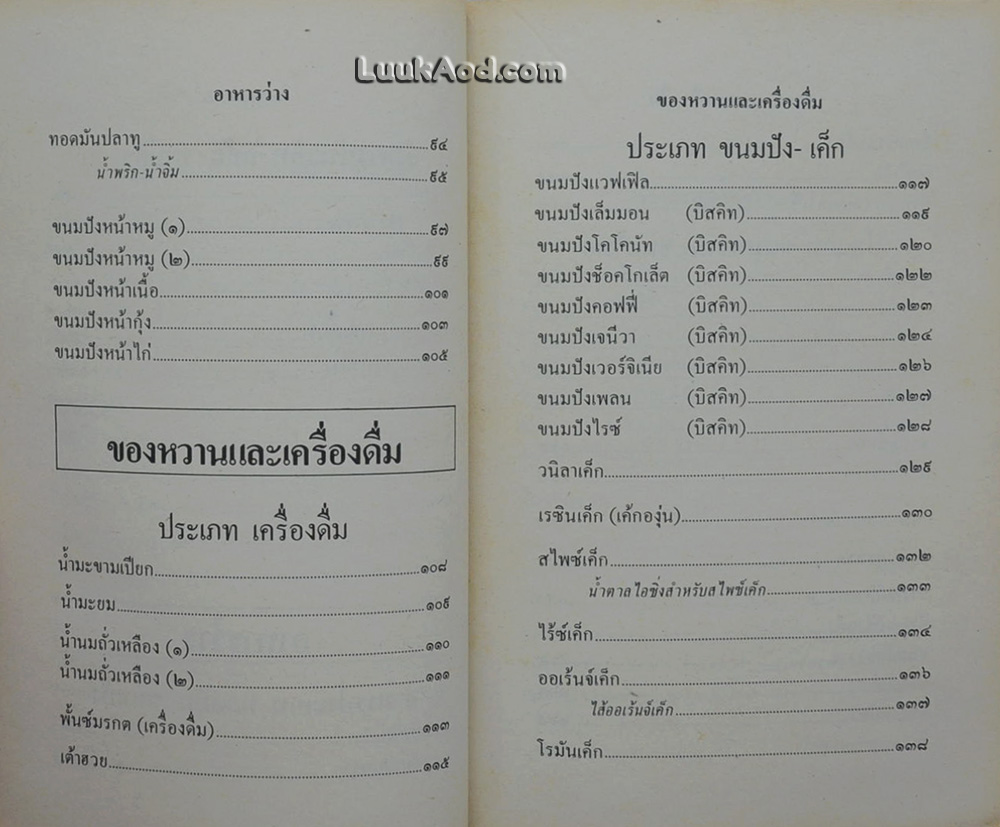 LuukAod.com
อาหารว่าง
ทอดมันปลาทู........๙๔
น้ำพริก-น้ำจิ้ม........๙๕
ขนมปังหน้าหมู (๑)........๙๗
ขนมปังหน้าหมู (๒)........๙๙
ขนมปังหน้าเนื้อ........๑๐๑
ขนมปังหน้ากุ้ง........๑๐๓
ขนมปังหน้าไก่........๑๐๕
ของหวานและเครื่องดื่ม
ประเภท เครื่องดื่ม
น้ำมะขามเปียก........๑๐๘
น้ำมะยม........๑๐๙
น้ำนมถั่วเหลือง (๑)........๑๑๐
น้ำนมถั่วเหลือง (๒)........๑๑๑
พั้นซ์มรกต (เครื่องดื่ม)........๑๑๓
เต้าฮวย........๑๑๕
ของหวานและเครื่องดื่ม
ประเภท ขนมปัง- เค็ก
ขนมปังแวฟเฟิล........๑๑๗
ขนมปังเล็มมอน (บิสคิท)........๑๑๙
ขนมปังโคโคนัท (บิสคิท)........๑๒๐
ขนมปังช็อคโกเล็ต (บิสคิท)........๑๒๒
ขนมปังคอฟฟี่ (บิสคิท)........๑๒๓
ขนมปังเจนีวา (บิสคิท)........๑๒๔
ขนมปังเวอร์จิเนีย (บิสคิท)........๑๒๖
ขนมปังเพลน (บิสคิท)........๑๒๗
ขนมปังไรซ์ (บิสคิท)........๑๒๘
วนิลาเค็ก........๑๒๙
เรซินเค็ก (เค้กองุ่น)........๑๓๐
สไพซ์เค็ก........๑๓๒
น้ำตาลไอซิ่งสำหรับสไพซ์เค็ก........๑๓๓
ไร้ซ์เค็ก........๑๓๔
ออเร้นจ์เค็ก........๑๓๖
ไส้ออเร้นจ์เค็ก........๑๓๗
โรมันเค็ก........๑๓๘